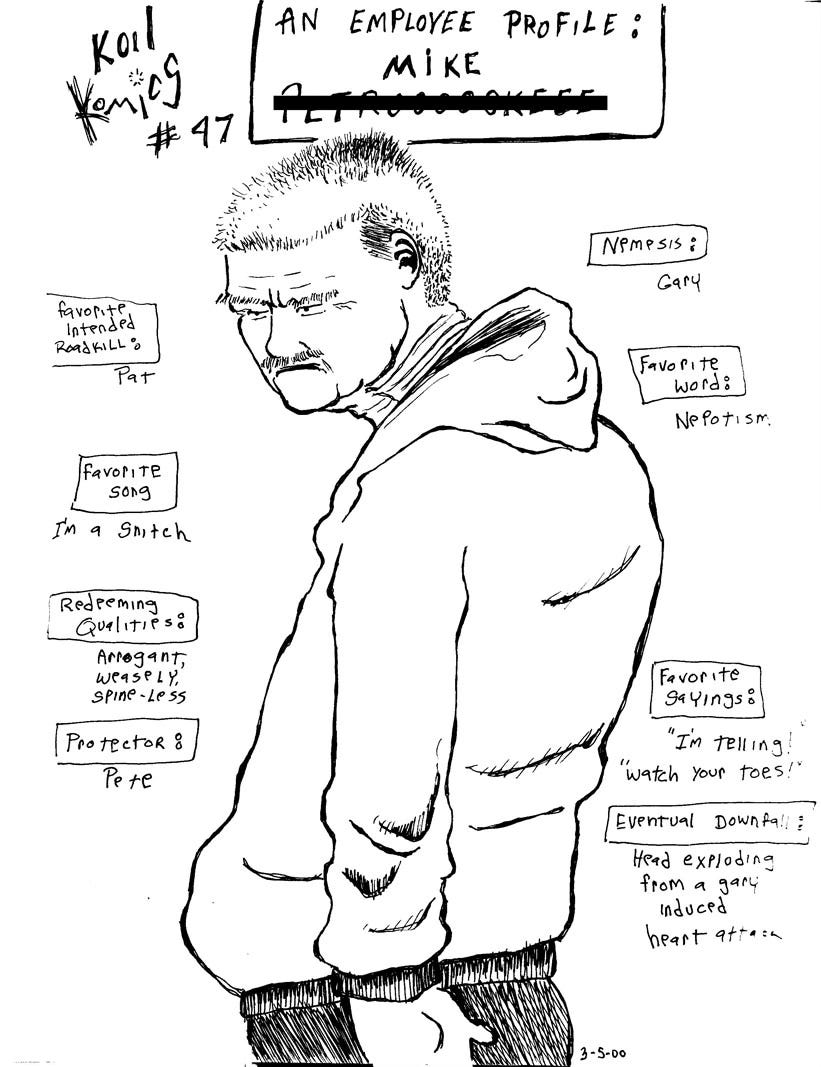 Koil
Komics
# 47
AN EMPLOYEE PROFILE:
MIKE
Nemesis:
Gary
Favorite
Intended
Roadkill:
Pat
Favorite
Word:
Nepotism.
Favorite
Song
I'm a Snitch
Redeeming
Qualities:
Arrogant,
weasely,
spine-less
Favorite
Sayings:
"I'm telling!"
"watch your toes!"
Protector:
Pete
Eventual Downfall:
Head exploding
from a gary
induced
heart attack
3-5-00